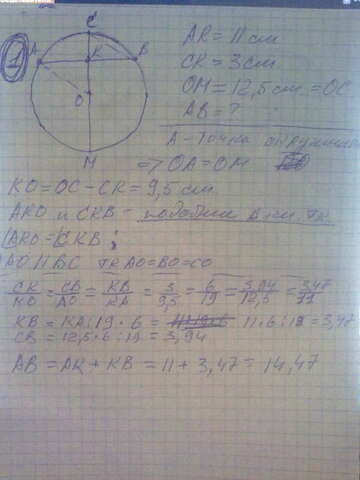 1
C
A
K
B
O
M
AK = 11 см
CK = 3 см
OM = 12,5 см = OC
AB = ?
A - точка окружности
=> OA = OM
KO = OC - CK = 9,5 см
AKO и CKB - подобные
AKO = CKB ;
AO || BC т.к AO = BO = CO
CK/KO = CB/AO = KB/KA = 3/9,5 = 6/19 = 3,94/12,5 = 3,47/11
KB = KA : 19 · 6 = 11 · 6 : 19 = 3,47
CB = 12,5 · 6 : 19 = 3,94
AB = AK + KB = 11 + 3,47 = 14,47